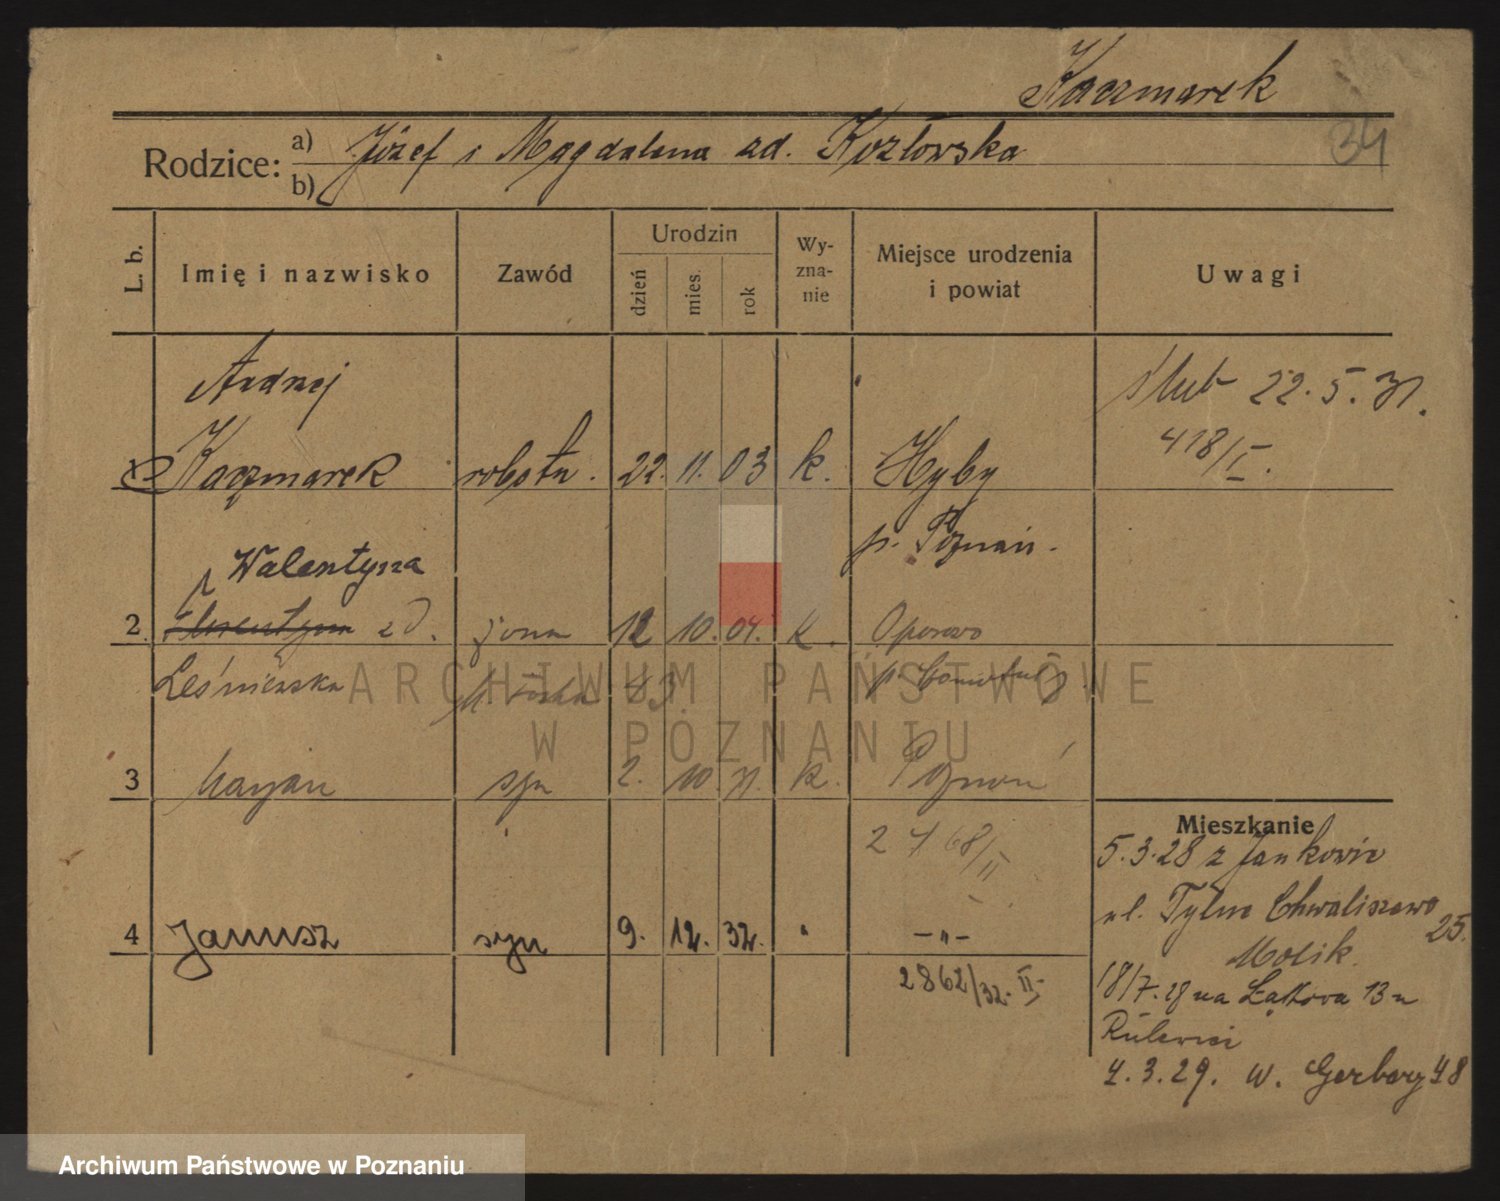 Kaczmarek
34
Rodzice: a) Józef i Magdalena zd. Kozłowska
b)
L. b. Imię i nazwisko Zawód Urodzin dzień mies. rok Wy-zna-nie Miejsce urodzenia i powiat Uwagi
Andrzej ślub 22.5.31.
418/I.
1 Kaczmarek robotn. 22. 11. 03 k. Hyby
p. Poznań.
Walentyna
2 zd. żona 12 10. 04. k. Oporowo
Leśniewska
3 Maryan syn 2. 10. 31. k. Poznań
68/II
4 Janusz syn 9. 12. 32. " -"-
2862/32. II
Mieszkanie
5.3.28 z Jankowic
ul. Tylne Chwaliszewo 25.
Molik
18/7.28 na Łąkowa 13
4.3.29. W. Garbary 48
ARCHIWUM PAŃSTWOWE
W POZNANIU
Archiwum Państwowe w Poznaniu